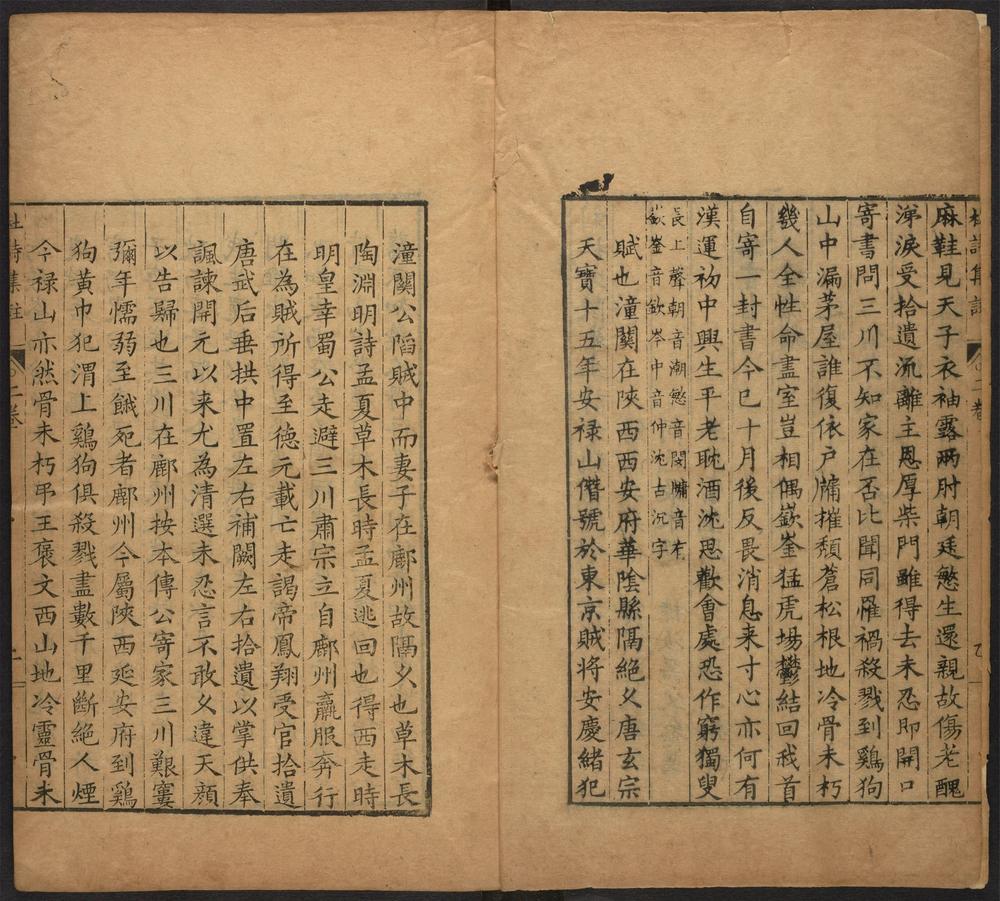 杜詩集註 二卷
麻鞋見天子衣袖露兩肘朝廷慜生還親故傷老醜
涕淚受拾遺流離主恩厚柴門雖得去未忍即開口
寄書問三川不知家在否比聞同罹禍殺戮到鷄狗
山中漏茅屋誰復依户牗摧頹蒼松根地冷骨未朽
幾人全性命盡室豈相偶嶔崟猛虎場鬱結回我首
自寄一封書今已十月後反畏消息来寸心亦何有
漢運初中興生平老耽酒沈思歡會處恐作窮獨叟
長上聲朝音潮慜音閔牗音有
嶔崟音欽岑中音仲沈古沉字
賦也潼関在陝西西安府華陰縣隔絕乆唐玄宗
天寳十五年安禄山僭號於東京賊將安慶緒犯
潼関公䧟賊中而妻子在鄜州故隔乆也草木長
陶淵明詩孟夏草木長時孟夏逃回也得西走時
明皇幸蜀公走避三川肅宗立自鄜州羸服奔行
在為賊所得至德元載亡走謁帝鳳翔受官拾遺
唐武后垂拱中置左右補闕左右拾遺以掌供奉
諷諫開元以来尤為清選未忍言不敢乆違天顔
以告歸也三川在鄜州按本傳公寄家三川艱窶
彌年懦弱至餓死者鄜州今屬陝西延安府到鷄
狗黄巾犯渭上鷄狗俱殺戮盡數千里斷絕人煙
今禄山亦然骨未朽弔王褒文西山地冷靈骨未
杜詩集註 二卷